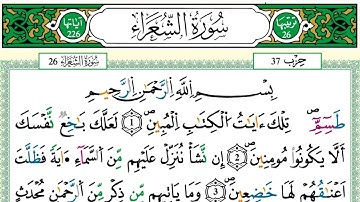 ترتيبها 26 سُورَةُ الشُّعَرَاءِ آياتها 226
حِزْب 37 سُورَةُ الشُّعَرَاءِ 26
بِسْمِ اِ۬للَّهِ اِ۬لرَّحْمَٰنِ اِ۬لرَّحِيمِ
طَسِٓمِّٓۖ تِلْكَ ءَايَٰتُ اُ۬لْكِتَٰبِ اِ۬لْمُبِينِۖ 1 لَعَلَّكَ بَٰخِعٞ نَّفْسَكَ
أَلَّا يَكُونُواْ مُومِنِينَۖ 2 إِن نَّشَأْ نُنَزِّلْ عَلَيْهِم مِّنَ اَ۬لسَّمَآءِ ا۬يَةٗ فَظَلَّتَ
اَعْنَٰقُهُمْ لَهَا خَٰضِعِينَۖ 3 وَمَا يَاتِيهِم مِّن ذِكْرٖ مِّنَ اَ۬لرَّحْمَٰنِ مُحْدَثٍ